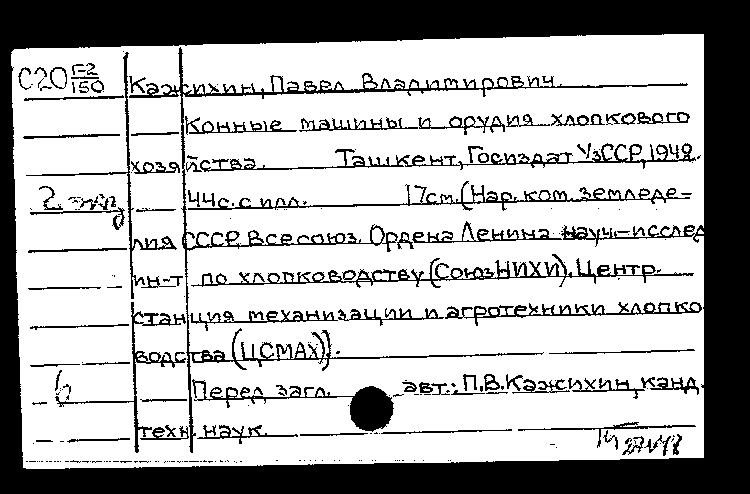 С20 Г-2/150 Кажихин, Павел Владимирович.
Конные машины и орудия хлопкового
хозяйства. Ташкент, Госиздат УзССР, 1942.
2 экз 44с. с илл. 17см. (Нар. ком. земледе-
лия СССР. Всесоюз. Ордена Ленина науч.-исслед
ин-т по хлопководству (СоюзНИХИ). Центр.
станция механизации и агротехники хлопко
водства (ЦСМАХ)).
б Перед загл. авт.: П.В. Кажихин, канд.
техн. наук.